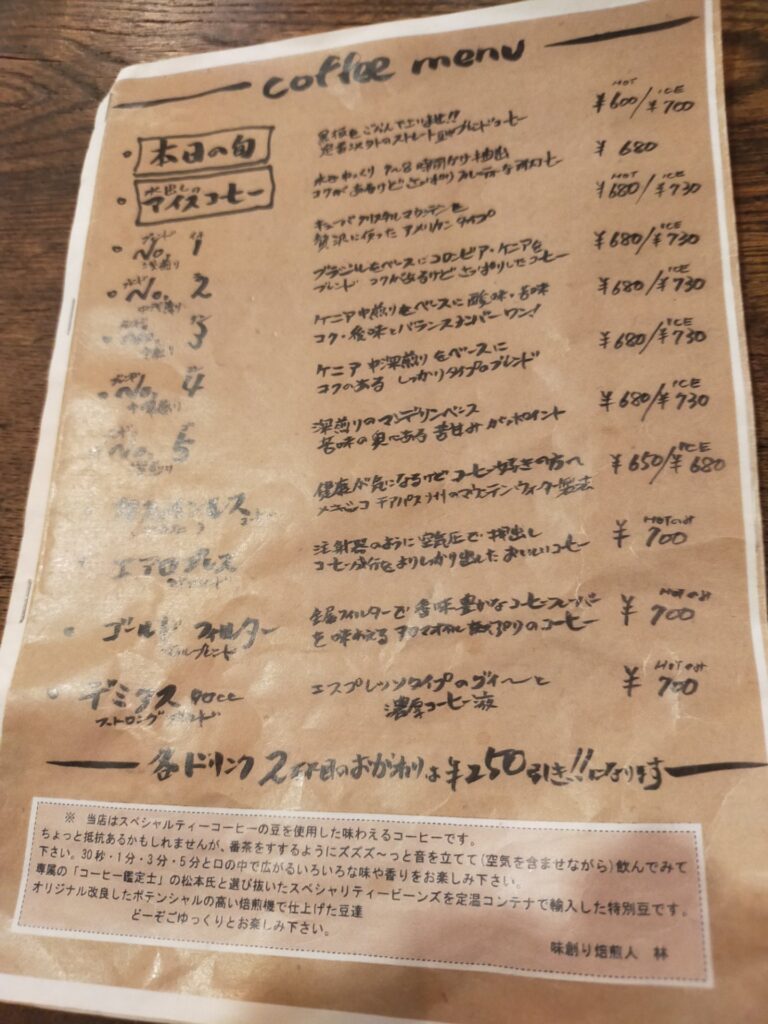 coffee menu
本日の旬
黒板をごらん下さいませ!!
定番以外のストレート豆 コーヒー
HOT ICE
¥600/¥700
水出しの
アイスコーヒー
水で ゆっくり 8時間かけ抽出
コクがあるけど さっぱり コーヒー
¥680
ブレンド No. 1
キューバクリスタルマウンテンを
贅沢に使った アメリカンタイプ
HOT ICE
¥680/¥730
No. 2
ブラジルをベースにコロンビア・ケニアを
ブレンド コクがあるけどさっぱりしたコーヒー
ICE
¥680/¥730
No. 3
ケニア中煎りをベースに 酸味・苦味
コク・後味とバランスナンバーワン!
ICE
¥680/¥730
ブレンド No. 4
中深煎り
ケニア 中深煎りをベースに
コクのある しっかりタイプのブレンド
ICE
¥680/¥730
No. 5
深煎りのマンデリンベース
苦味の奥にある 苦甘みがポイント
ICE
¥680/¥730
カフェインレス
コーヒー
健康が気になるけど コーヒー好きの方へ
メキシコ チアパス州のマウンテンウォーター製法
ICE
¥650/¥680
エアロプレス
注射器のように空気圧で 押出し
コーヒー成分をよりしっかり出した おいしいコーヒー
HOTのみ
¥700
ゴールド フィルター
ブレンド
金属フィルターで 香味豊かなコーヒーフレーバー
を味わえる アロマオイルたっぷりのコーヒー
HOTのみ
¥700
デミタス 90cc
ストロング
エスプレッソタイプのグイ〜と
濃厚コーヒー液
HOTのみ
¥700
各ドリンク 2杯目のおかわりは¥250引き!!になります
※ 当店はスペシャルティーコーヒーの豆を使用した味わえるコーヒーです。
ちょっと抵抗あるかもしれませんが、番茶をすするようにズズズ〜っと音を立てて(空気を含ませながら)飲んでみて
下さい。30秒・1分・3分・5分と口の中で広がるいろいろな味や香りをお楽しみ下さい。
専属の「コーヒー鑑定士」の松本氏と選び抜いたスペシャリティービーンズを定温コンテナで輸入した特別豆です。
オリジナル改良したポテンシャルの高い焙煎機で仕上げた豆達
どーぞごゆっくりとお楽しみ下さい。
味創り焙煎人 林